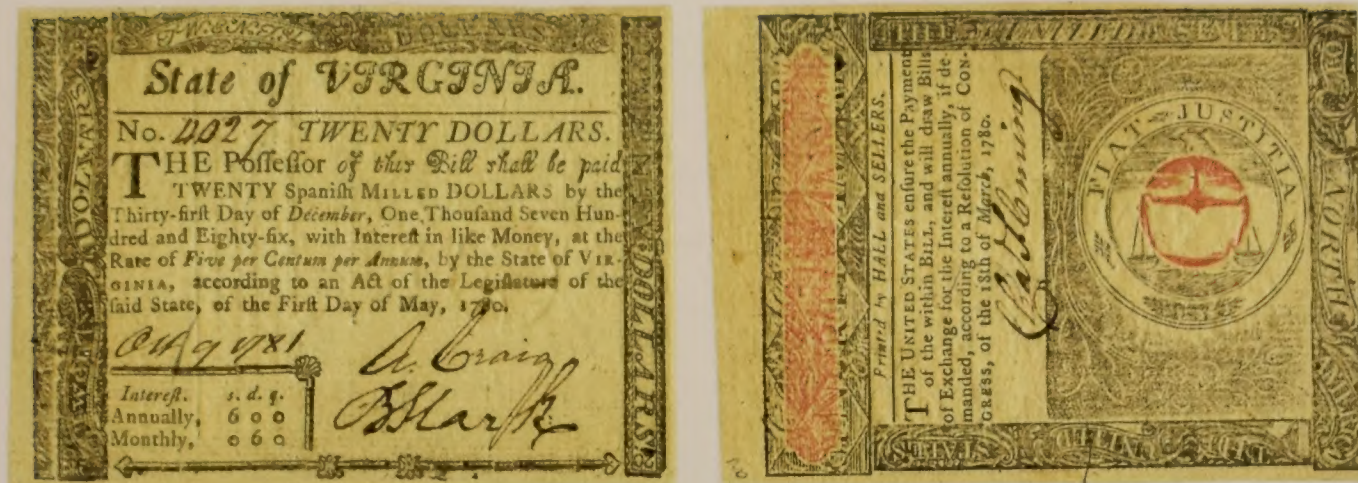 TWENTY DOLLARS
State of VIRGINIA.
No. 4027 TWENTY DOLLARS.
THE Poſſeſſor of this Bill shall be paid
TWENTY Spaniſh MILLED DOLLARS by the
Thirty-firſt Day of December, One Thouſand Seven Hun-
dred and Eighty-ſix, with Intereſt in like Money, at the
Rate of Five per Centum per Annum, by the State of VIR-
GINIA, according to an Act of the Legiſlature of the
ſaid State, of the Firſt Day of May, 1780.
1781
A. Craig
B Stark
Intereſt. s. d. q.
Annually, 6 0 0
Monthly, 0 6 0
TWENTY DOLLARS
TWENTY DOLLARS
THE UNITED STATES
OF NORTH AMERICA
THE UNITED STATES
Printed by HALL and SELLERS.
THE UNITED STATES enſure the Payment
of the within BILL, and will draw Bills
of Exchange for the Intereſt annually, if de-
manded, according to a Reſolution of CON-
GRESS, of the 18th of March, 1780.
FIAT JUSTITIA